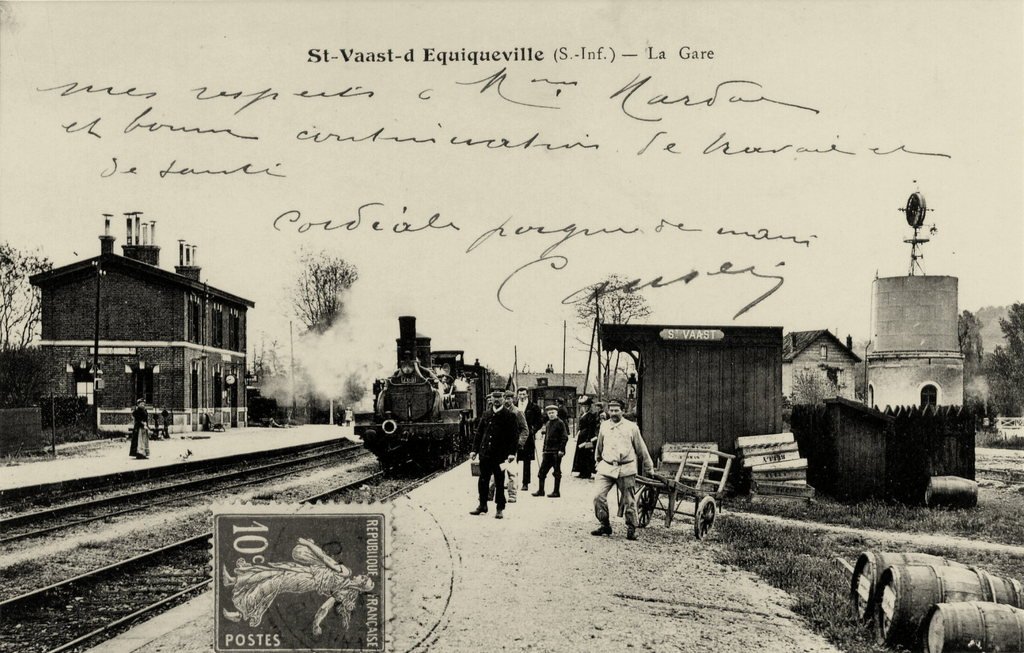 St-Vaast-d Equiqueville (S.-Inf.) — La Gare
mes respects à Mme
et bonne continuation de travail et
de santé
Cordiale poignée de main
St VAAST
10c
REPUBLIQUE FRANÇAISE
POSTES